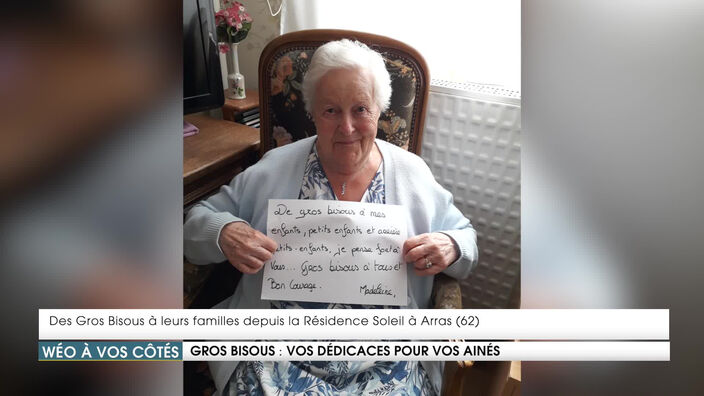 De gros bisous à mes
enfants, petits enfants et arrière
petits-enfants, je pense fort à
Vous... Gros bisous à tous et
Bon Courage. Madeleine.
Des Gros Bisous à leurs familles depuis la Résidence Soleil à Arras (62)
WÉO À VOS CÔTÉS GROS BISOUS : VOS DÉDICACES POUR VOS AINÉS